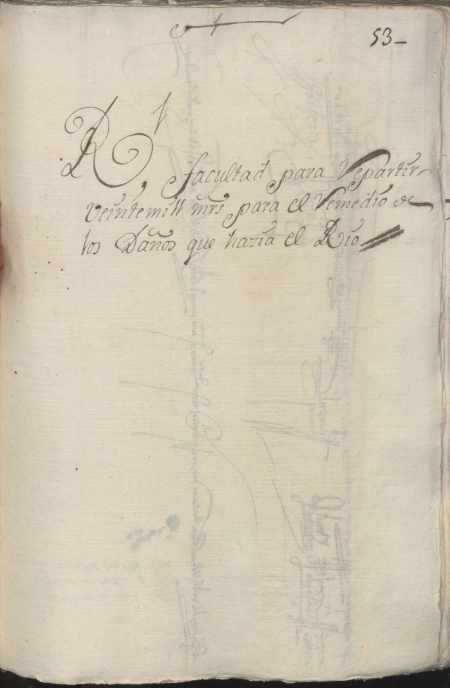 53
Rl facultad para Repartir
veintemill mrs para el Remedio de
los Daños que hazia el Rio